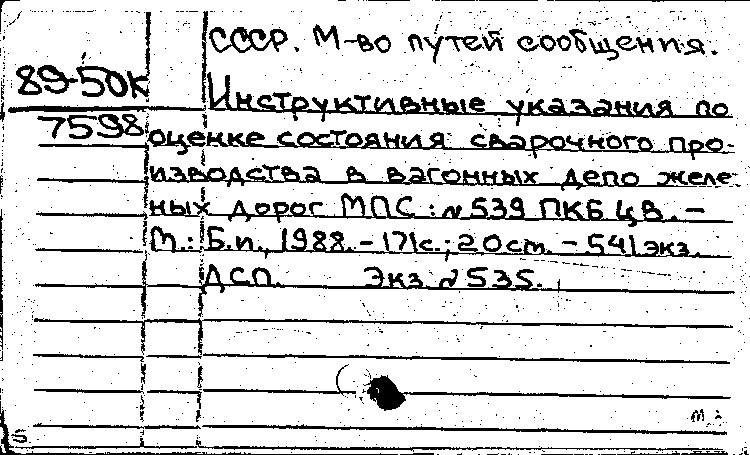 СССР. М-во путей сообщения.
89-50К
7598
Инструктивные указания по
оценке состояния сварочного про-
изводства в вагонных депо желе-
ных дорог МПС: №539 ПКБ ЦВ. -
М.: Б.и., 1988. - 171с.; 20см. - 541экз.
ДСП. Экз №535.